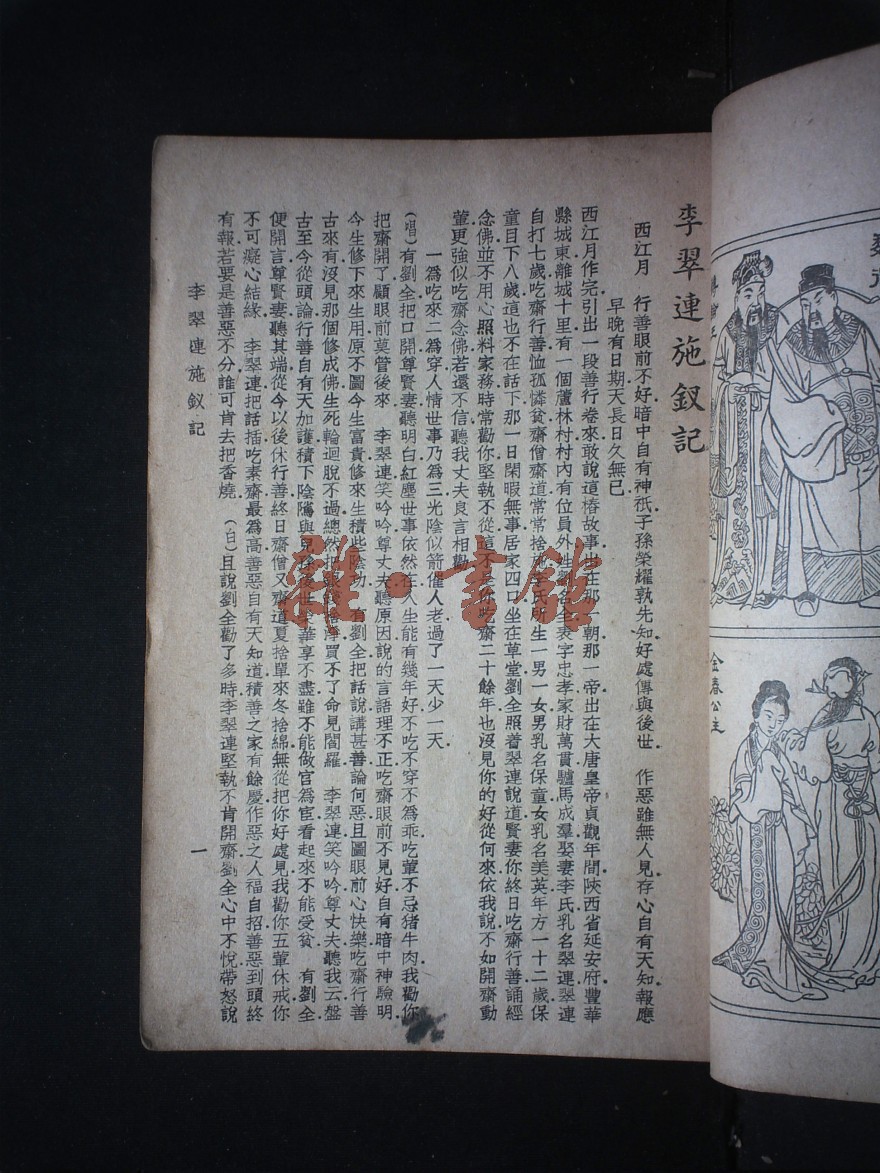 李翠連施釵記
西江月　行善眼前不好暗中自有神祇子孫榮耀孰先知好處傳與後世　作惡雖無人見存心自有天知報應
早晚有日期天長日久無已
西江月作完引出一段善行卷來敢說這樁故事出在那一朝那一帝出在大唐皇帝貞觀年間陝西省延安府豐華
縣城東離城十里有一個蘆林村村內有位員外生名全表字忠孝家財萬貫驢馬成羣娶妻李氏乳名翠連翠連
自打七歲吃齋行善恤孤憐貧齋僧齋道常常捨李氏所生一男一女男乳名保童女乳名美英年方一十二歲保
童目下八歲這也不在話下那一日閑暇無事居家四口坐在草堂劉全照着翠連說道賢妻你終日吃齋行善誦經
念佛並不用心照料家務時常勸你堅執不從這不是你吃齋二十餘年也沒見你的好從何來依我說不如開齋動
葷更強似吃齋念佛若還不信聽我丈夫良言相勸
一爲吃來二爲穿人情世事乃爲三光陰似箭催人老過了一天少一天
(唱)有劉全把口開尊賢妻聽明白紅塵世事依然在人生能有幾年好不吃不穿不爲乖吃葷不忌猪牛肉我勸你
把齋開了顧眼前莫管後來　李翠連笑吟吟尊丈夫聽原因說的言語理不正吃齋眼前不見好自有暗中神驗明
今生修下來生用原不圖今生富貴修來生積些陰功　有劉全把話說講甚善論何惡且圖眼前心快樂吃齋行善
古來有沒見那個修成佛生死輪迴脫不過總然把買不了命見閻羅　李翠連笑吟吟尊丈夫聽我云盤
古至今從頭論行善自有天加護積下陰隲與兒孫後世榮華享不盡雖不能做官爲宦看起來不能受貧　有劉全
便開言尊賢妻聽其端從今以後休行善終日齋僧又齋道夏捨單來冬捨綿無從把你好處見我勸你五葷休戒你
不可癡心結緣　李翠連把話插吃素齋最爲高善惡自有天知道積善之家有餘慶作惡之人福自招善惡到頭終
有報若要是善惡不分誰可肯去把香燒　(白)且說劉全勸了多時李翠連堅執不肯開齋劉全心中不悅帶怒說
李翠連施釵記
一
金春公主
雜·書館